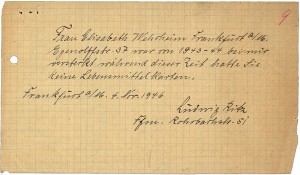 9
Frau Elisabeth Wehrheim Frankfurt a/M.
Egenolffstr. 37 war von 1943-44 bei mir
versteckt während dieser Zeit hatte Sie
keine Lebensmittel Karten.
Frankfurt a/M. 4. Nov. 1946
Ludwig
Ffm. Rohrbachstr. 51